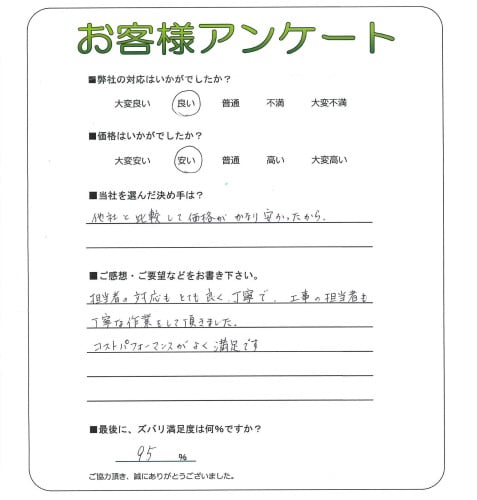 お客様アンケート
■弊社の対応はいかがでしたか？
大変良い 良い 普通 不満 大変不満
■価格はいかがでしたか？
大変安い 安い 普通 高い 大変高い
■当社を選んだ決め手は？
他社と比較して価格がかなり安かったから。
■ご感想・ご要望などをお書き下さい。
担当者の対応もとても良く丁寧で、工事の担当者も
丁寧な作業をして頂きました。
コストパフォーマンスがよく満足です
■最後に、ズバリ満足度は何%ですか？
95 %
ご協力頂き、誠にありがとうございました。